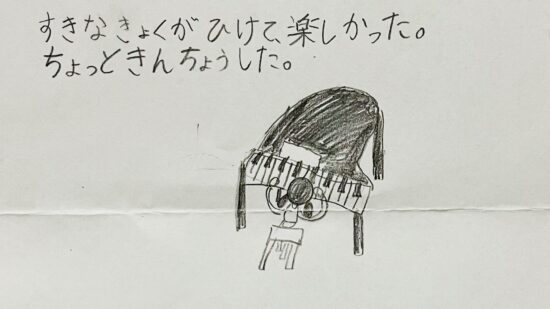 すきなきょくがひけて、楽しかった。
ちょっときんちょうした。